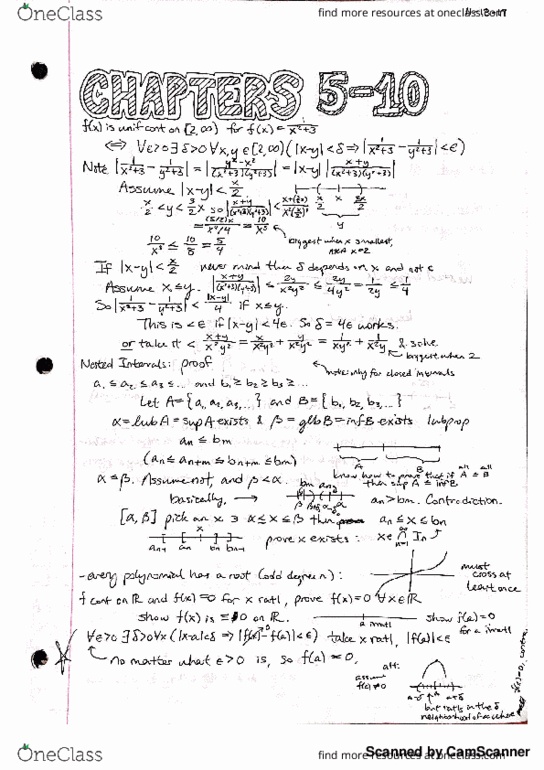 OneClass
find more resources at oneclass.com
CHAPTERS 5-10
f(x) is unif cont on [2,∞) for f(x) = 1/(x²+3)
⟺ ∀ε>0 ∃δ>0 ∀x,y ∈[2,∞)(|x-y|<δ ⇒ |1/(x²+3) - 1/(y²+3)|<ε)
Note |1/(x²+3) - 1/(y²+3)| = |(y²-x²)/((x²+3)(y²+3))| = |x-y| |(x+y)/((x²+3)(y²+3))|
Assume |x-y| < x/2
x/2 < y < 3/2 x so |(x+y)/((x²+3)(y²+3))| <
= (5/2)x/(x⁴/4) = 10/x³
biggest when x smallest, AKA x=2
10/x³ ≤ 10/8 = 5/4
If |x-y| < x/2 never mind then δ depends on x and not ε
Assume x≤y. |(x+y)/((x²+3)(y²+3))| ≤ 2y/x²y² ≤ 2y/4y² = 1/2y ≤ 1/4
So |1/(x²+3) - 1/(y²+3)| < |x-y|/4 if x≤y.
This is <ε if |x-y|<4ε. So δ=4ε works.
or take it < (x+y)/x²y² = x/x²y² + y/x²y² = 1/xy² + 1/x²y & solve
biggest when 2
Nested Intervals: proof
note: why for closed intervals
a₁ ≤ a₂ ≤ a₃ ≤ ... and b₁ ≥ b₂ ≥ b₃ ≥ ...
Let A={a₁, a₂, a₃, ...} and B={b₁, b₂, b₃, ...}
α=lub A = sup A exists & β = glb B = inf B exists lub prop
an ≤ bm
(an ≤ an+m ≤ bn+m ≤ bm)
A B
know how to prove that if all A ≤ all B then sup A ≤ inf B
α ≤ β. Assume not, and β<α.
basically, →
bm an
an > bm. Contradiction.
[α,β] pick an x ∋ α ≤ x ≤ β then an ≤ x ≤ bn
x
an-1 an bn bn-1
prove x exists: x∈ ∩ In
-every polynomial has a root (odd degree n):
must cross at least once
f cont on ℝ and f(x)=0 for x ratl, prove f(x)=0 ∀x∈ℝ
show f(x) is =0 on ℝ.
a irratl
show f(a)=0 for a irratl
∀ε>0 ∃δ>0 ∀x(|x-a|<δ ⇒ |f(x)-f(a)|<ε) take x ratl, |f(a)|<ε
no matter what ε>0 is, so f(a)=0.
alt: assume f(a)≠0
a-δ a a+δ
but ratl x in the δ neighborhood of a
OneClass
find more resources at oneclass.com
Scanned by CamScanner